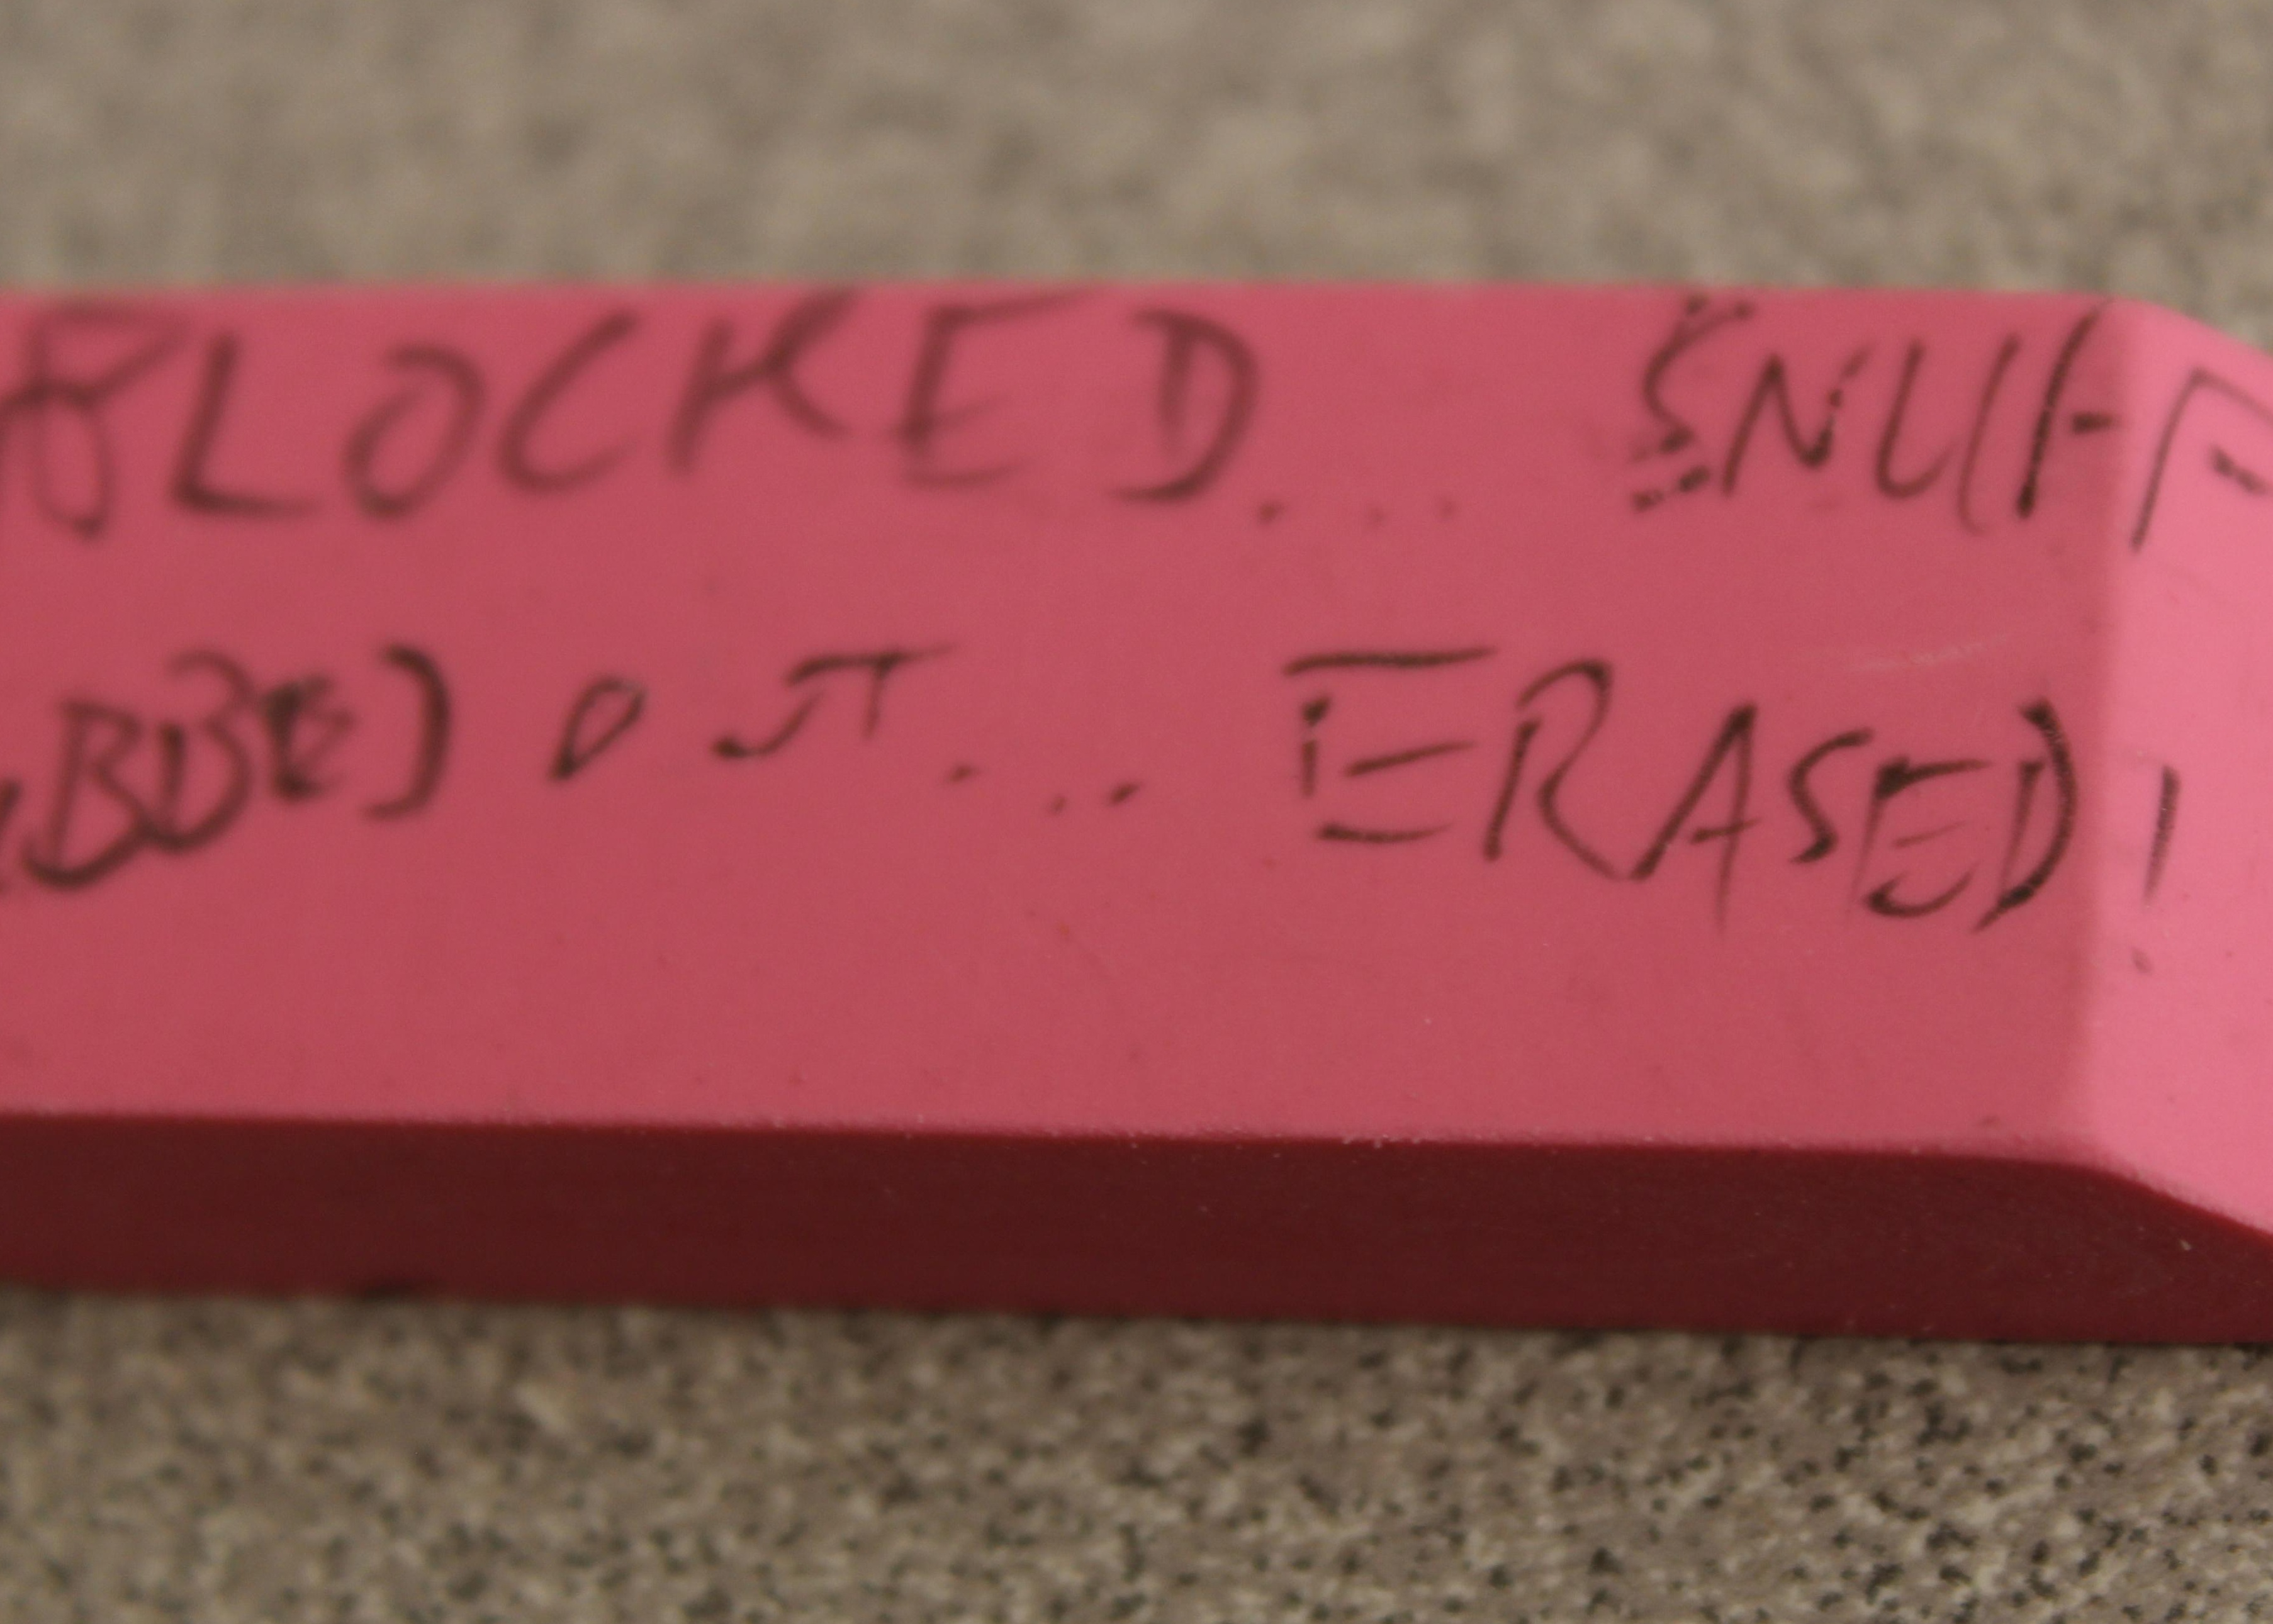 BLOCKED... SNUFF
OUT... ERASED!